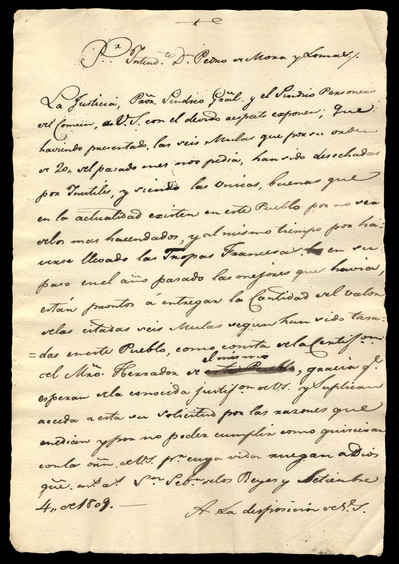 Sr. Intend.e D. Pedro de Mora y Lomas.
La Justicia, Pror. Sindico Gral. y el Sindico Personero
del Comun, a V.S. con el devido respeto exponen; Que
haviendo presentado, las seis Mulas que por su orden
de 20, del pasado mes nos pedia, han sido desechadas
por Inutiles, y siendo las Unicas, buenas que
en la actualidad existen en este Pueblo por no ser
delos mas hacendados, y al mismo tiempo por ha-
verse llevado las Tropas Francesas en su
paso en el año pasado las mejores que havia,
están prontos a entregar la Cantidad del valor
delas citadas seis Mulas segun han sido tasa-
das en este Pueblo, como consta dela Certif.on
del Mro. Herrador de el mismo, gracia q.e
esperan dela conocida justif.on de V.S. y suplican
acceda a esta su solicitud por las razones que
median y por no poder cumplir como quisieran
con la orn. de V.S. p.r cuya vida ruegan a Dios
gue. m.s a.s Sn. Seb.n delos Reyes y Setiembre
4,, de 1809.
A La disposicion de V.S.